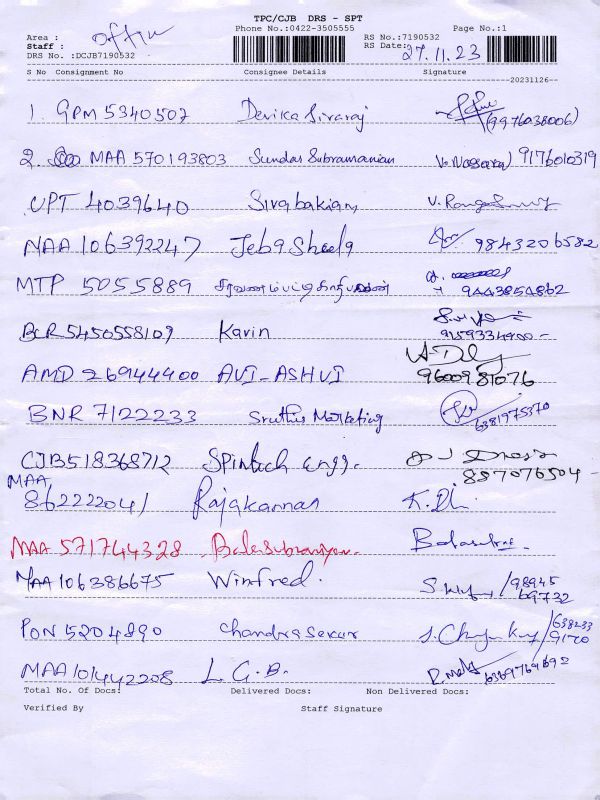 TPC/CJB DRS - SPT
Area : office Phone No.:0422-3505555 Page No.:1
Staff : RS No.:7190532
DRS No. :DCJB7190532 RS Date: 27.11.23
S No Consignment No Consignee Details Signature
20231126
1. GPM 5340507 Devika Sivaraj (9976038006)
2. MAA 570193803 Sundar Subramanian 9176010319
UPT 4039640 Sivabakiam V. Rangasamy
MAA 106392247 Jeba Sheela 9843206582
MTP 5055889 9443854862
BCR 5450558109 Kavin 9159334900
AMD 26944400 AVI-ASHVI 9600981076
BNR 7122233 Sruthis Marketing 6381975370
CJB518368712 Spintech Engg. 887076504
MAA
862222041 Rajakannan
MAA 571744328 Balasubramiyan
MAA 106386675 Winfred. 98945
69732
PON 5204890 Chandra Sekar 638233
9170
MAA 101442208 L.G.B. 6369769892
Total No. Of Docs: Delivered Docs: Non Delivered Docs:
Verified By Staff Signature